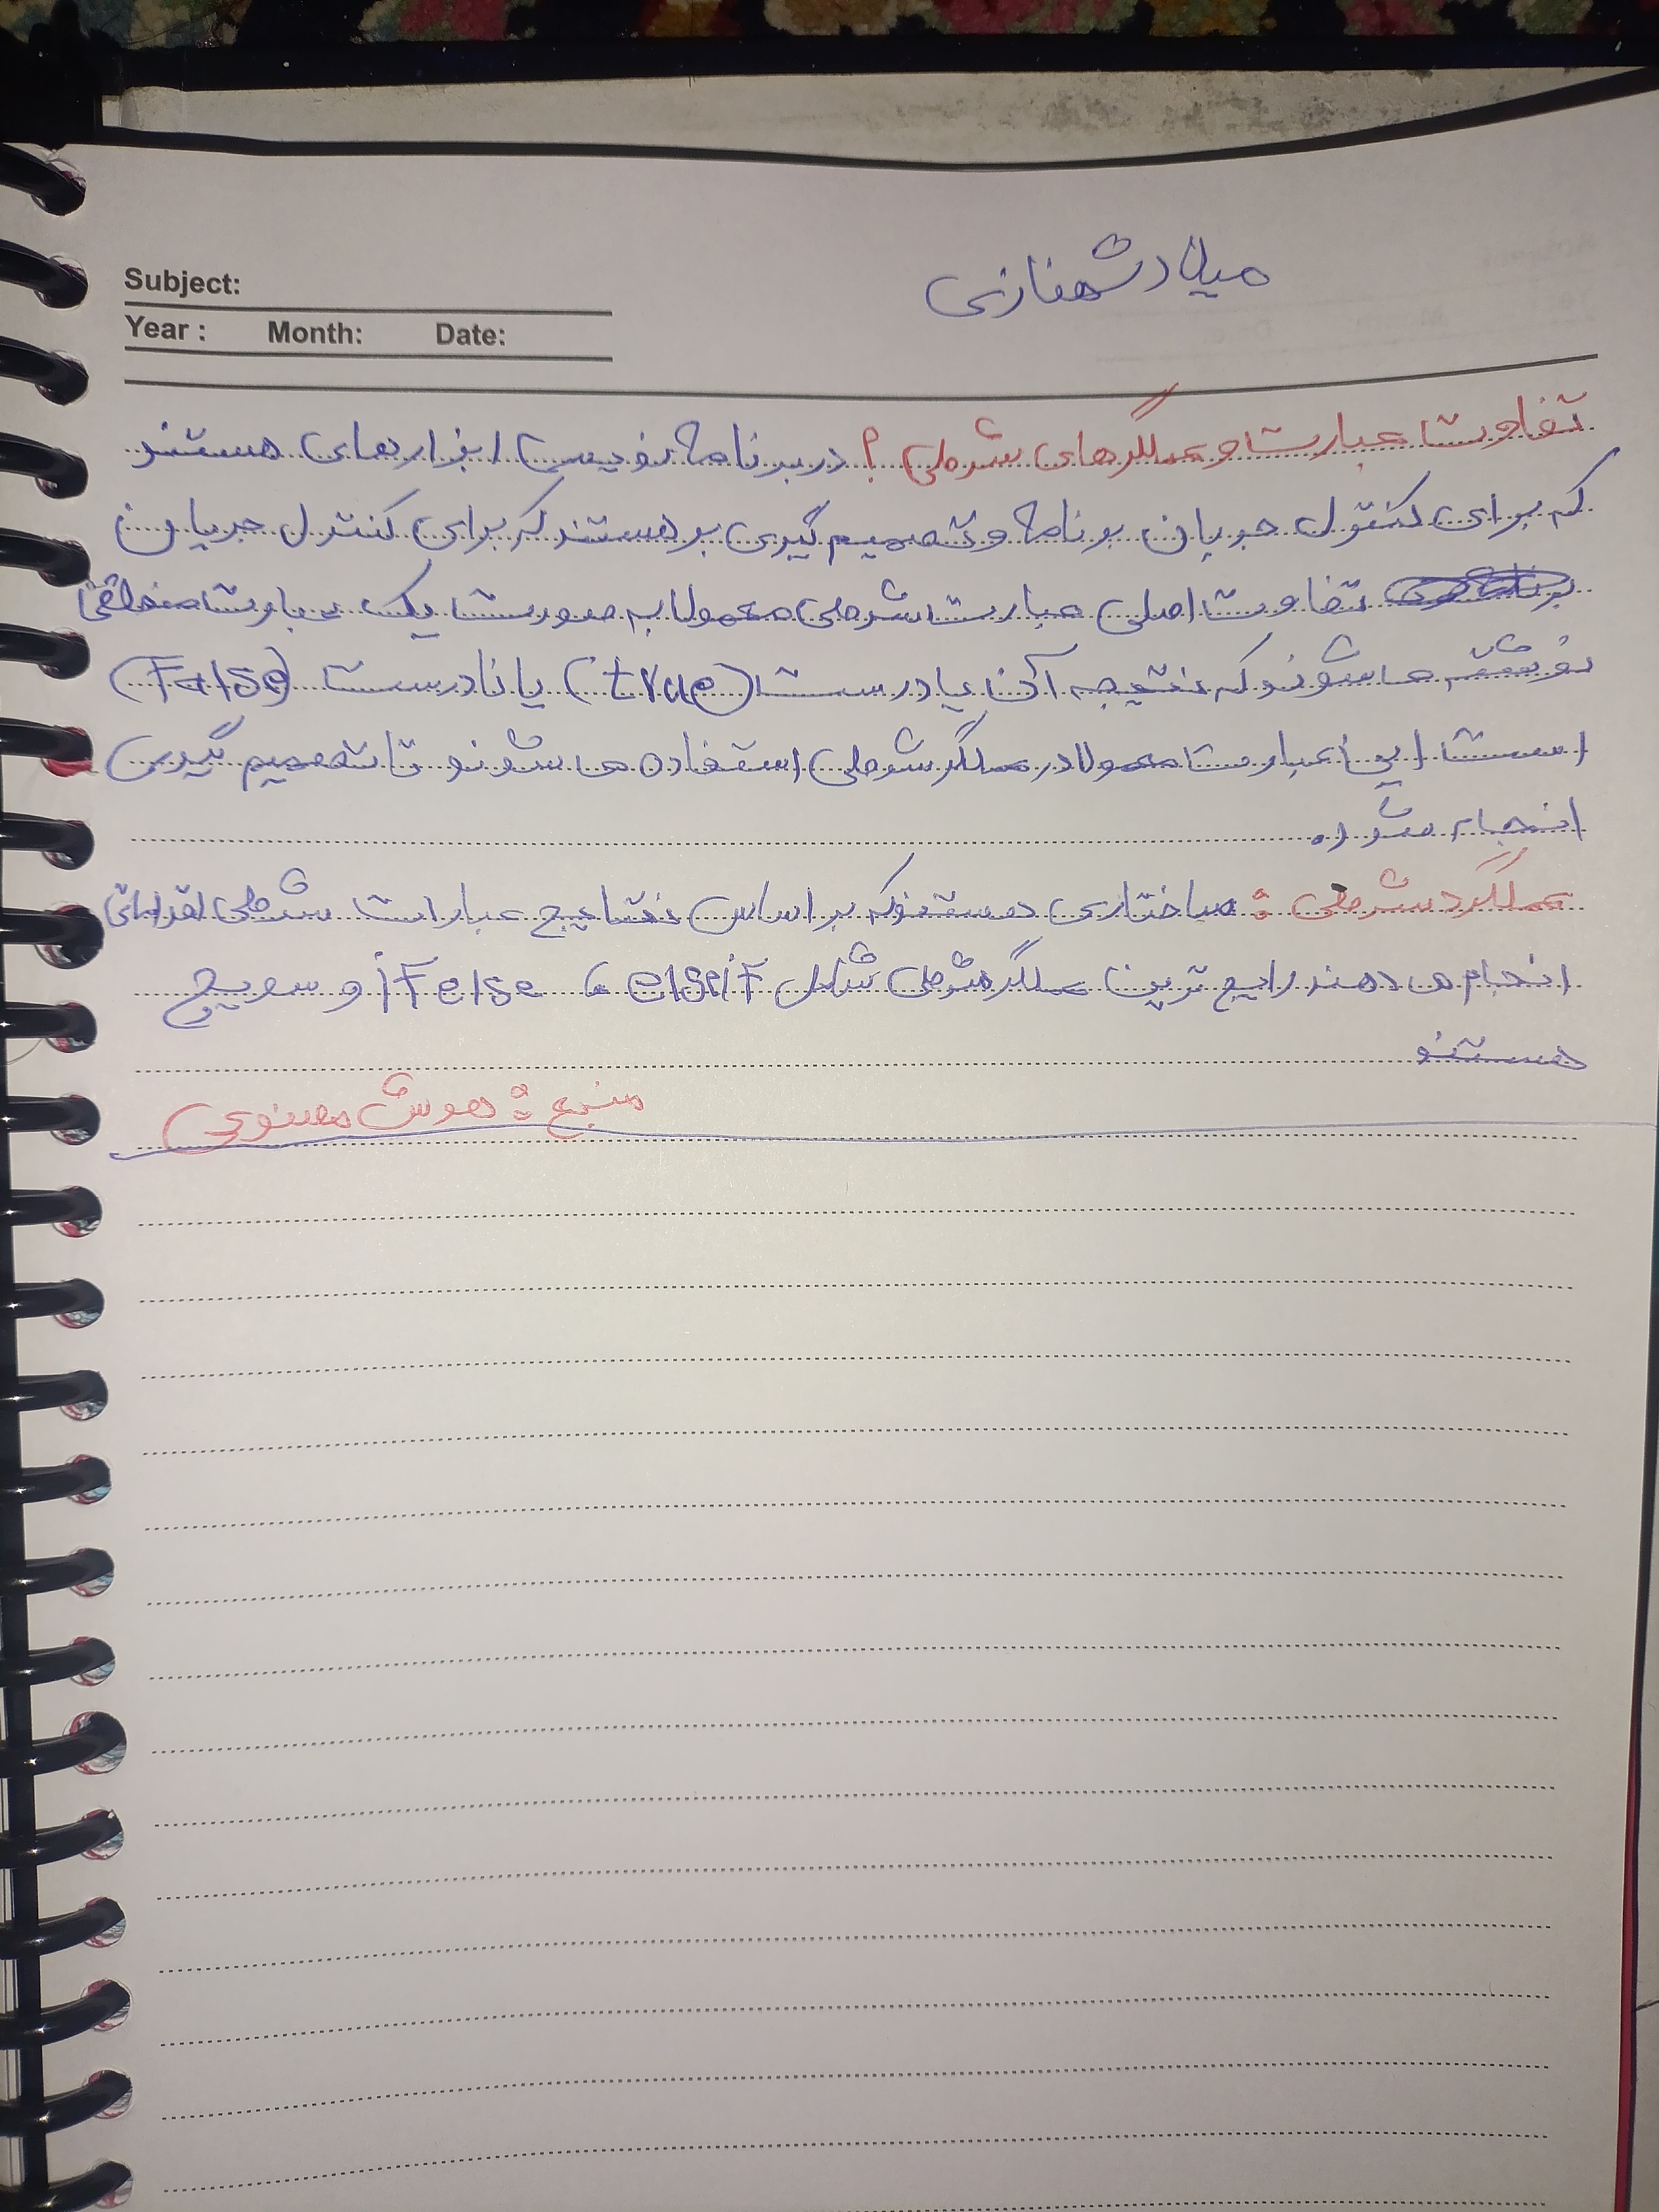 میلاد شهنازی
Subject:
Year : Month: Date:
تفاوت عبارت و عملگرهای شرطی ؟ در برنامه نویسی ابزارهای هستند
که برای کنترل جریان برنامه و تصمیم گیری بر هستند که برای کنترل جریان
برنامه تفاوت اصلی عبارت شرطی معمولا به صورت یک عبارت منطقی
نوشته می شوند که نتیجه آن یا درست (true) یا نادرست (False)
است این عبارت معمولا در عملگر شرطی استفاده می شوند تا تصمیم گیری
انجام شود.
عملگرد شرطی : ساختاری هستند که بر اساس نتایج عبارات شرطی اقداماتی
انجام می دهند رایج ترین عملگر شرطی شامل elseif ، iF else و سویچ
هستند
منبع : هوش مصنوعی